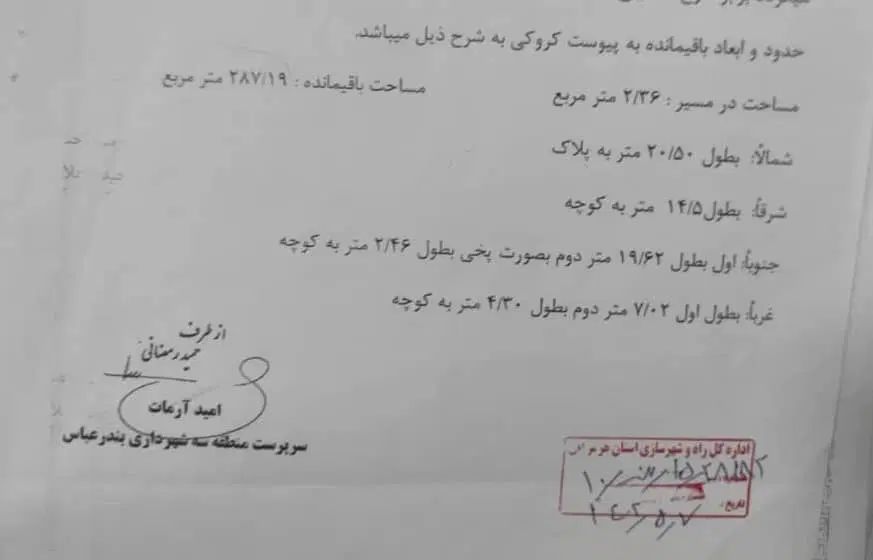 حدود و ابعاد باقیمانده به پیوست کروکی به شرح ذیل میباشد.
مساحت در مسیر : ۲/۳۶ متر مربع مساحت باقیمانده : ۲۸۷/۱۹ متر مربع
شمالاً: بطول ۲۰/۵۰ متر به پلاک
شرقاً: بطول۱۴/۵ متر به کوچه
جنوباً: اول بطول ۱۹/۶۲ متر دوم بصورت پخی بطول ۲/۴۶ متر به کوچه
غرباً: بطول اول ۷/۰۲ متر دوم بطول ۴/۳۰ متر به کوچه
از طرف
حمید رمضانی
امید آرمات
سرپرست منطقه سه شهرداری بندرعباس
اداره کل راه و شهرسازی استان هرمزگان
تاریخ: